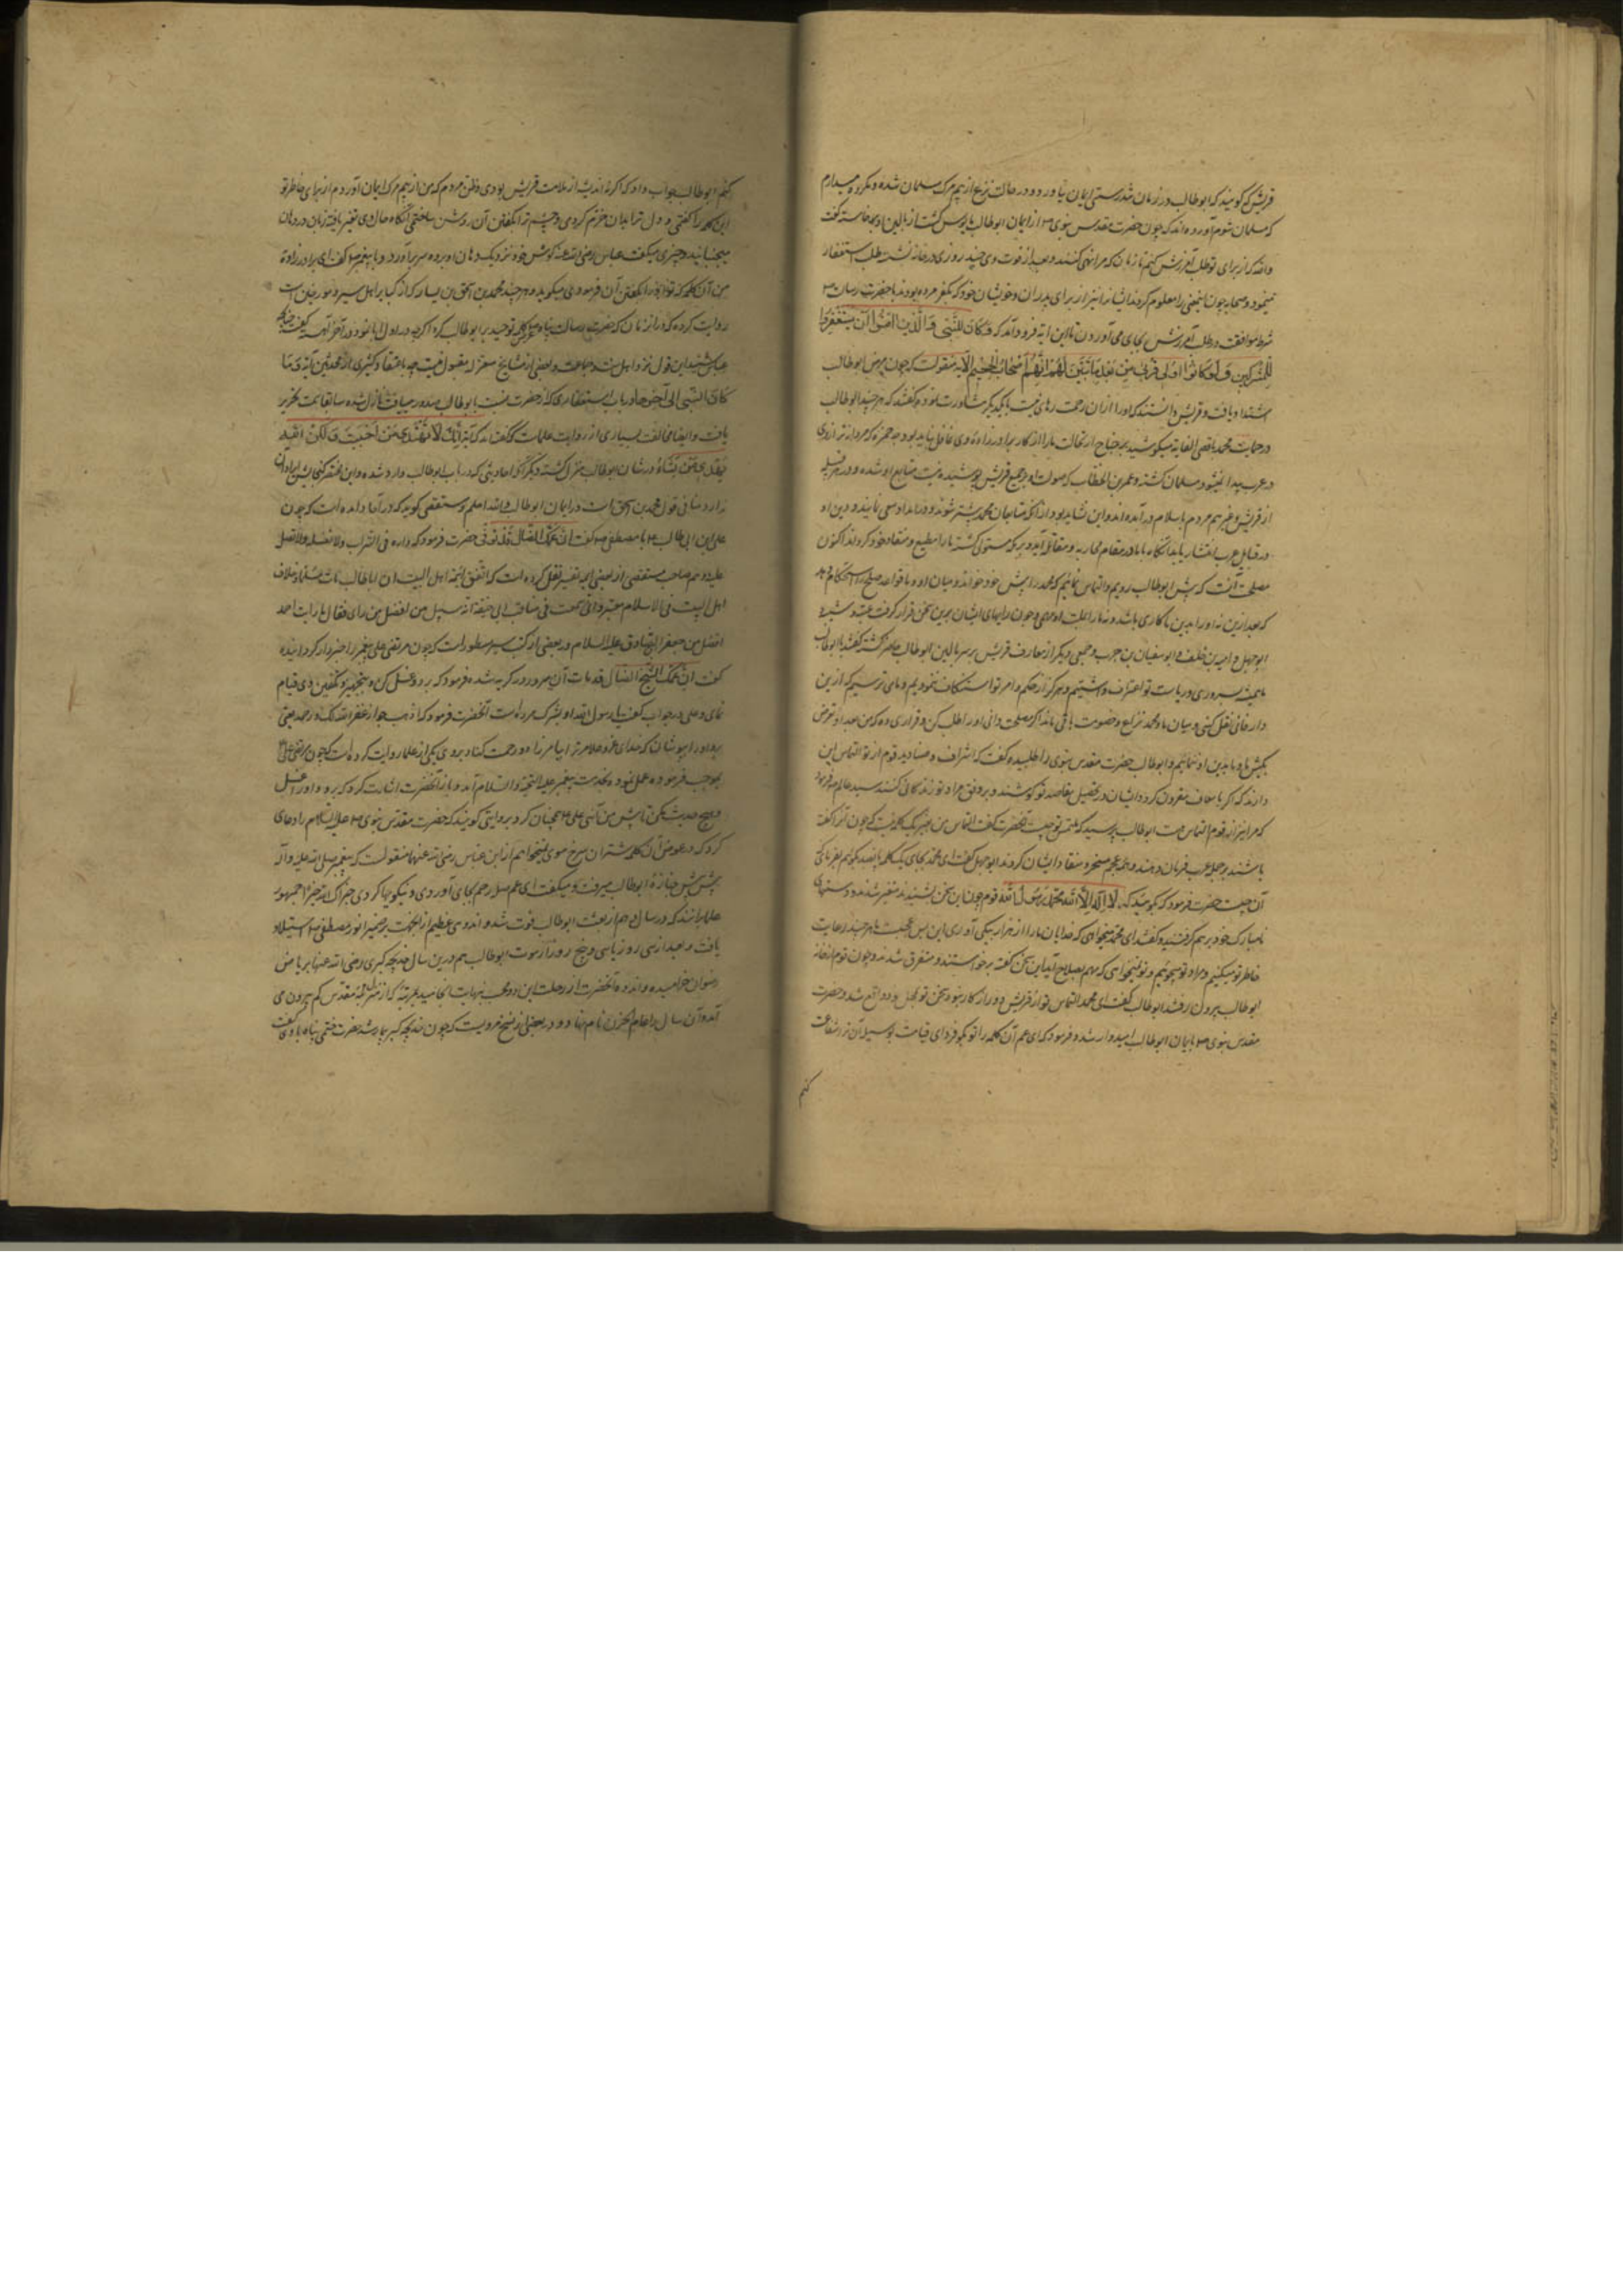 قریش که گویند که ابوطالب در زمان تندرستی ایمان نیاورد و در حالت نزع از بیم مرک مسلمان شده و مکروه میدارم
که مسلمان شوم آورده اند که چون حضرت مقدس نبوی ص از ایمان ابوطالب مایوس گشت از بالین او برخاسته گفت
والله که از برای تو طلب آمرزش کنم تا زمان که مرا نهی کنند و بعد از فوت وی چند روزی در خانه نشسته طلب استغفار
مینمود و صحابه چون اینمعنی را معلوم کردند ایشان نیز از برای پدران و خویشان خود که بکفر مرده بودند با حضرت رسالت ص
شرط موافقت در طلب آمرزش بجای می آوردند تا این آیه فرود آمد که مَا كَانَ لِلنَّبِي وَالَّذِينَ آمَنُوا أَن يَسْتَغْفِرُوا
لِلْمُشْرِكِينَ وَلَوْ كَانُوا أُولِي قُرْبَى مِن بَعْدِ مَا تَبَيَّنَ لَهُمْ أَنَّهُمْ أَصْحَابُ الْجَحِيمِ الآیه منقولست که چون مرض ابوطالب
اشتداد یافت و قریش دانستند که او را از ان زحمت رهایی نیست با یکدیگر مشاورت نموده گفتند که هر چند ابوطالب
در حمایت محمد باقصی الغایه میکوشید بهر حال ما را از کار برادرزاده وی غافل نباید بود چه حمزه که مردانه تر از وی
در عرب پیدا نمیشود مسلمان گشته و عمر بن الخطاب که صولت او بر جمیع قریش پوشیده نیست متابع او شده و در هر قبیله
از قریش و غیرهم مردم باسلام درآمده اند و این نشاید بود از آنکه متابعان محمد بیشتر شوند و در امداد او سعی نمایند و دین او
در قبایل عرب انتشار یابد انگاه با ما در مقام محاربه و مقاتله آید و بر مکه مستولی گشته ما را مطیع و منقاد خود گرداند اکنون
مصلحت آنست که پیش ابوطالب رویم و التماس نمائیم که محمد را پیش خود خواند و میان او و ما قواعد صلح را استحکام دهد
که بعد ازین نه او را بدین ما کاری باشد و نه ما را بملت او مهمی و چون رایهای ایشان برین سخن قرار گرفت عتبه و شیبه و
ابوجهل و امیه بن خلف و ابوسفیان بن حرب و جمعی دیگر از معارف قریش بر سر بالین ابوطالب حاضر گشته گفتند یا ابوطالب
ما همیشه بسروری و ریاست تو اعتراف داشتیم و هرگز از حکم و امر تو استنکاف ننمودیم و مای ترسیم که ازین
دار فانی نقل کنی و میان ما و محمد نزاع و خصومت باقی ماند اگر مصلحت دانی او را طلب کن و قراری ده که من بعد او تعرض
بکیش ما و ما بدین او ننمائیم و ابوطالب حضرت مقدس نبوی را طلبیده گفت که اشراف و صنادید قوم از تو التماس این
دارند که اگر باسعاف مقرون گردد ایشان در تحصیل مقاصد تو کوشند و بر وفق مراد تو زندگانی کنند سید عالم ص فرمود
که مرا نیز از قوم التماس هست ابوطالب پرسید که ملتمس تو چیست آنحضرت گفت التماس من بغیر یک کلمه نیست که چون آنرا گفته
باشند بر جمله عرب فرمان دهند و همه عجم مسخر و منقاد ایشان گردند ابوجهل گفت ای محمد بجای یک کلمه پانصد کوئیم بفرمای که
آن چیست حضرت فرمود که بگویید که لَا إِلَهَ إِلَّا اللَّه مُحَمَّد رَسُولُ اللَّه قوم چون این سخن بشنیدند متغیر شدند و دستهای
نامبارک خود بر هم گرفتند و گفتند ای محمد میخواهی که خدایان ما را از هزار بیکی آوری این بس عجبست ما هر چند رعایت
خاطر تو میکنیم و مراد تو میجوئیم و تو نمیخواهی که مهم بصلاح آید این سخن گفته برخواستند و متفرق شدند و چون قوم از خانه
ابوطالب بیرون رفتند ابوطالب گفت ای محمد التماس تو از قریش دور از کار نبود و سخن تو بمحل خود واقع شد و حضرت
مقدس نبوی ص بایمان ابوطالب امیدوار شده فرمود که ای عم آن کلمه را تو بگو فردای قیامت بوسیله آن ترا شفاعت
کنم
کنم ابوطالب جواب داد که اگر نه اندیشه از ملامت قریش بودی و ظن مردم که من از بیم مرک ایمان آوردم از برای خاطر تو
این کلمه را گفتمی و دل ترا بدان خرم کردمی و چشم ترا بگفتن آن روشن ساختمی آنگاه حال وی تغیر یافته زبان در دهان
میجنبانید و چیزی میگفت عباس رضی الله عنه گوش خود نزدیک دهان او برده سر برآورد و با پیغمبر ص گفت ای برادرزاده
من آن کلمه که تو او را بگفتن آن فرمودی میگوید و هر چند محمد بن اسحق بن یسار که از کبار اهل سیر و مورخین است
روایت کرده که در ان زمان که حضرت رسالت پناه ص عرض کلمه توحید بر ابوطالب کرد اگرچه در اول ابا نمود در آخر آهسته گفت چنانکه
عباس شنید این قول نزد اهل سنت و جماعت و بعضی از مشایخ معتزله مقبول نیست چه باعتقاد کثیری از محدثین آیه وَ مَا
كَانَ النَّبِي الی آخرها در باب استغفاری که از حضرت نسبت بابوطالب صدور مییافت نازل شده سابقا سمت تحریر
یافت و ایضا مخالفت بسیاری از روایت علماست که گفته اند که آیه إِنَّكَ لَا تَهْدِي مَنْ أَحْبَبْتَ وَلَكِنَّ اللهَ
يَهْدِي مَن يَشَاءُ در شان ابوطالب منزل گشته و دیگر آنکه احادیثی که در باب ابوطالب وارد شده و این مختصر گنجایش ایراد آن
ندارد منافی قول محمد بن اسحق است در ایمان ابوطالب والله اعلم و مستقصی گوید که در آحاد آمده است که چون
علی بن ابی طالب ع با مصطفی ص گفت ان عَمَّكَ الضَّال قَد تُوُفّی حضرت فرمود که واره فی التراب ولا تغسله ولا تصل
علیه و هم صاحب مستقصی از بعضی ایمه تفسیر نقل کرده است که اتفق ائمه اهل البیت ان اباطالب مات مسلما و خلاف
اهل البیت فی الاسلام معتبر
افضل من جعفر الصادق علیه السلام و در بعضی از کتب سیر مسطور است که چون مرتضی علی پیغمبر را خبردار گردانیده
گفت ان عَمَّكَ الشَّيْخَ الضَّال قد مات آن سرور در گریه شده فرمود که برو و غسل کن و بتجهیز و تکفین وی قیام
نمای و علی در جواب گفت یا رسول الله او بشرک مرده است آنحضرت فرمود که اذهب فواره غفر الله له و رحمه یعنی
برو او را بپوشان که خدای عز و علا مر ترا بیامرزاد و رحمت کناد بر وی یکی از علما روایت کرده است که چون مرتضی علی
بموجب فرموده عمل نموده بخدمت پیغمبر علیه التحیه و السلام آمد و باز آنحضرت اشارت کرد که برو و او را غسل
و هیچ حدیث مکن تا پیش من آئی علی ع همچنان کرد بروایتی گویند که حضرت مقدس نبوی ص علی علیه السلام را دعای
کرد که در عوض آن کلمه شتران سرخ موی نمیخواهم از ابن عباس رضی الله عنهما منقولست که پیغمبر صلی الله علیه و آله
پیش پیش جنازه ابوطالب میرفت و میگفت ای عم صله رحم بجای آوردی و نیکوییها کردی جزاک الله خیرا جمهور
علما برانند که در سال دهم از بعثت ابوطالب فوت شد و اندوهی عظیم از انجهت بر ضمیر انور مصطفی ص استیلا
یافت و بعد از سی روز یا سی و پنج روز از موت ابوطالب هم درین سال خدیجه کبری رضی الله عنها بریاض
رضوان خرامیده و اندوه آنحضرت از رحلت این دو محب بنهایت انجامید بمرتبه که از منزل مقدس کم بیرون می
آمد و آن سال را عام الحزن نام نهاد و در بعضی از نسخ مرویست که چون خدیجه کبری بیمار شد حضرت ختمی پناه با وی گفت